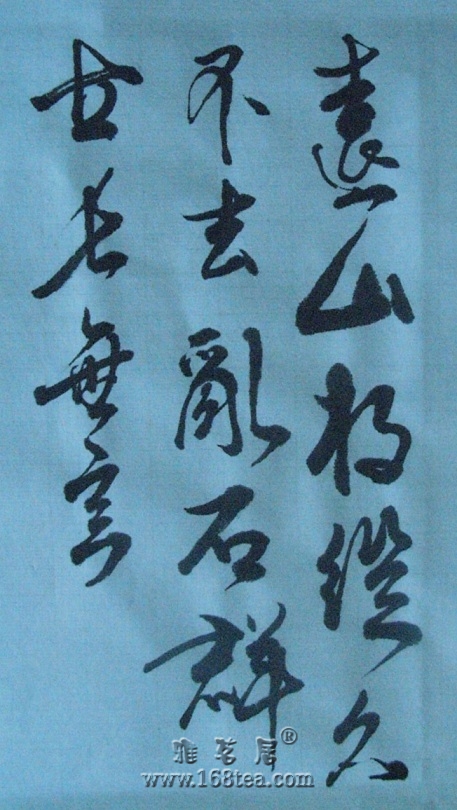 遠山縱久
不去亂石群
古長無言
雅茗居®
www.168tea.com